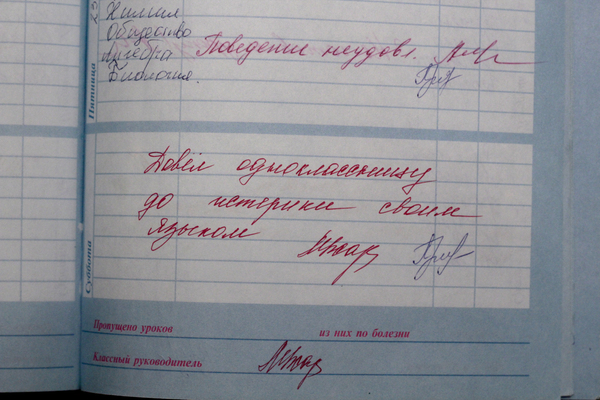 Химия
Общество
Алгебра Поведение неудовл.
Биология.
Пятница
Довёл одноклассницу
до истерики своим
языком
Суббота
Пропущено уроков из них по болезни
Классный руководитель